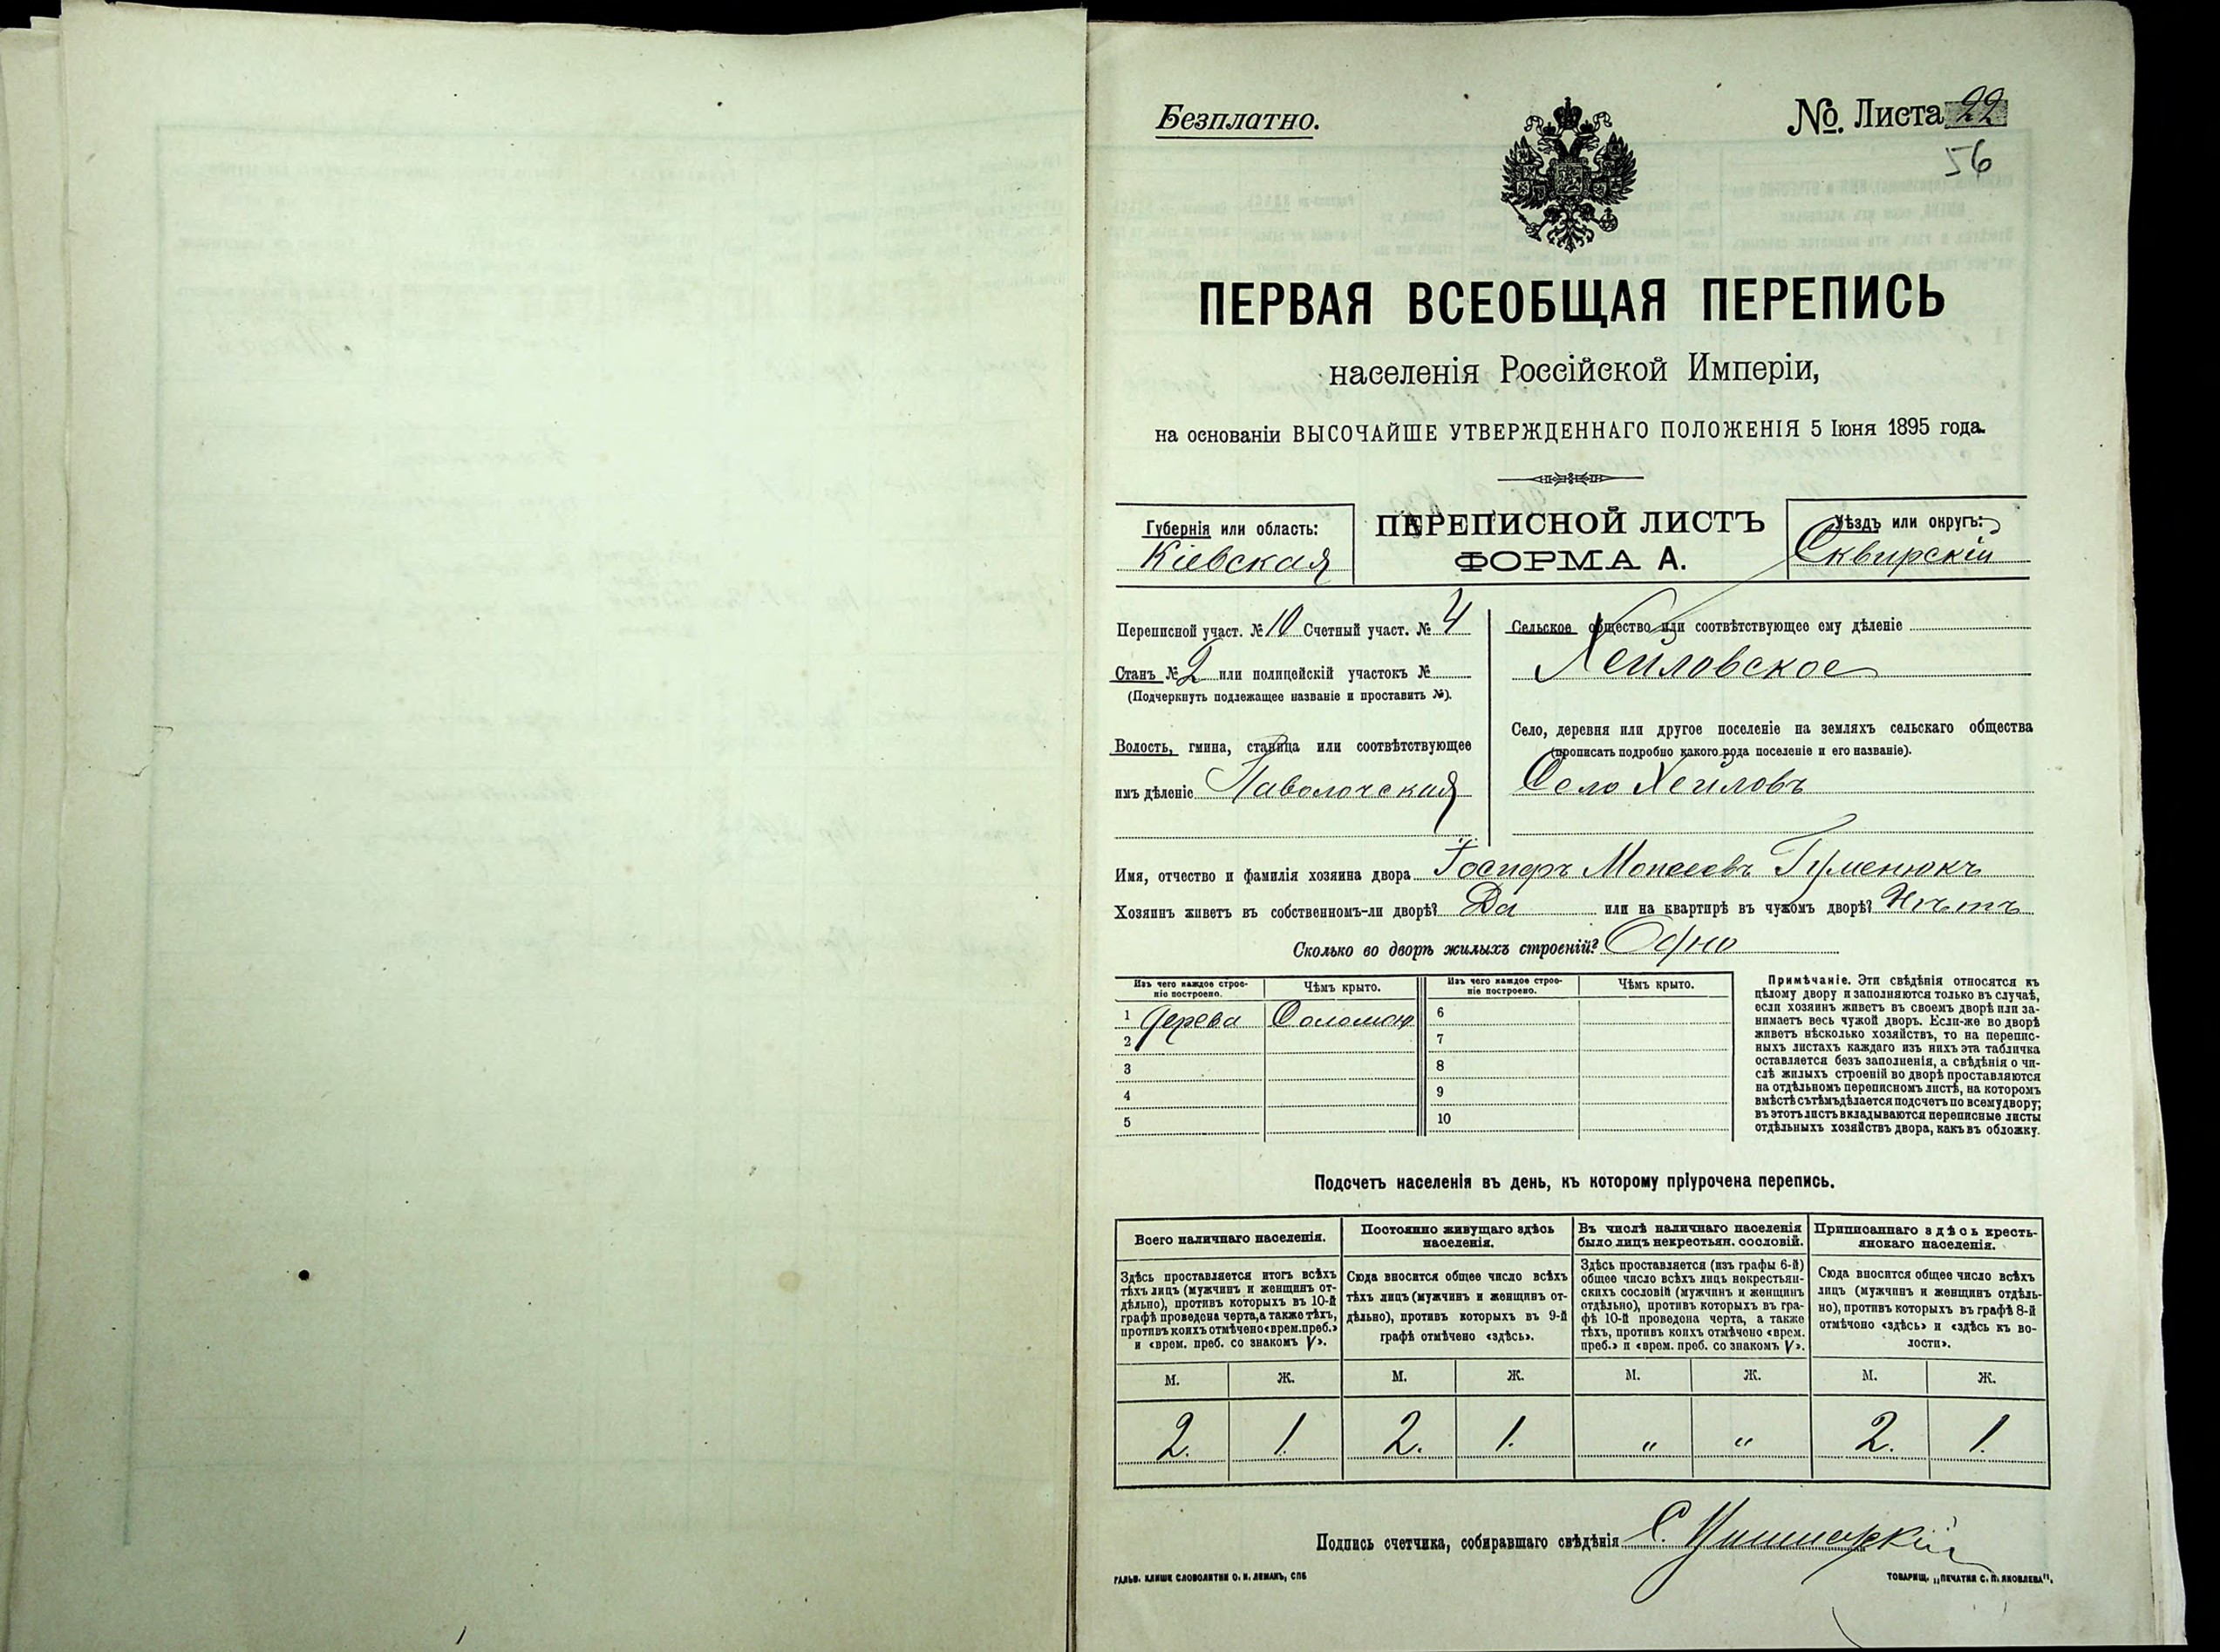 Безплатно.
№. Листа 22
56
ПЕРВАЯ ВСЕОБЩАЯ ПЕРЕПИСЬ
населенія Россійской Имперіи,
на основаніи ВЫСОЧАЙШЕ УТВЕРЖДЕННАГО ПОЛОЖЕНІЯ 5 Іюня 1895 года.
Губернія или область:
Кіевская
ПЕРЕПИСНОЙ ЛИСТЪ
ФОРМА А.
Уѣздъ или округъ:
Сквирскій
Переписной участ. № 10 Счетный участ. № 4
Станъ № 2 или полицейскій участокъ №
(Подчеркнуть подлежащее названіе и проставить №).
Волость, гмина, станица или соотвѣтствующее
имъ дѣленіе Паволочская
Сельское общество или соотвѣтствующее ему дѣленіе
Хейловское
Село, деревня или другое поселеніе на земляхъ сельскаго общества
(прописать подробно какого рода поселеніе и его названіе).
Село Хейловъ
Имя, отчество и фамилія хозяина двора Іосифъ Моисеевъ Гуменюкъ
Хозяинъ живетъ въ собственномъ-ли дворѣ? Да или на квартирѣ въ чужомъ дворѣ? Нѣтъ
Сколько во дворѣ жилыхъ строеній? Одно
Изъ чего каждое строе-
ніе построено.
Чѣмъ крыто.
Изъ чего каждое строе-
ніе построено.
Чѣмъ крыто.
1 Дерева Соломою 6
2 7
3 8
4 9
5 10
Примѣчаніе. Эти свѣдѣнія относятся къ
цѣлому двору и заполняются только въ случаѣ,
если хозяинъ живетъ въ своемъ дворѣ или за-
нимаетъ весь чужой дворъ. Если-же во дворѣ
живетъ нѣсколько хозяйствъ, то на перепис-
ныхъ листахъ каждаго изъ нихъ эта табличка
оставляется безъ заполненія, а свѣдѣнія о чи-
слѣ жилыхъ строеній во дворѣ проставляются
на отдѣльномъ переписномъ листѣ, на которомъ
вмѣстѣ съ тѣмъ дѣлается подсчетъ по всему двору;
въ этотъ листъ вкладываются переписные листы
отдѣльныхъ хозяйствъ двора, какъ въ обложку.
Подсчетъ населенія въ день, къ которому пріурочена перепись.
Всего наличнаго населенія.
Здѣсь проставляется итогъ всѣхъ
тѣхъ лицъ (мужчинъ и женщинъ от-
дѣльно), противъ которыхъ въ 10-й
графѣ проведена черта, а также тѣхъ,
противъ коихъ отмѣчено «врем. преб.»
и «врем. преб. со знакомъ V».
Постоянно живущаго здѣсь
населенія.
Сюда вносится общее число всѣхъ
тѣхъ лицъ (мужчинъ и женщинъ от-
дѣльно), противъ которыхъ въ 9-й
графѣ отмѣчено «здѣсь».
Въ числѣ наличнаго населенія
было лицъ некрестьян. сословій.
Здѣсь проставляется (изъ графы 6-й)
общее число всѣхъ лицъ некрестьян-
скихъ сословій (мужчинъ и женщинъ
отдѣльно), противъ которыхъ въ гра-
фѣ 10-й проведена черта, а также
тѣхъ, противъ коихъ отмѣчено «врем.
преб.» и «врем. преб. со знакомъ V».
Приписаннаго здѣсь кресть-
янскаго населенія.
Сюда вносится общее число всѣхъ
лицъ (мужчинъ и женщинъ отдѣль-
но), противъ которыхъ въ графѣ 8-й
отмѣчено «здѣсь» и «здѣсь къ во-
лости».
М. Ж. М. Ж. М. Ж. М. Ж.
2. 1. 2. 1. " " 2. 1.
Подпись счетчика, собиравшаго свѣдѣнія С.
ГАЛЬВ. КЛИШЕ СЛОВОЛИТНИ О. И. ЛЕМАНЪ, СПБ
ТОВАРИЩ. „ПЕЧАТНЯ С. П. ЯКОВЛЕВА".